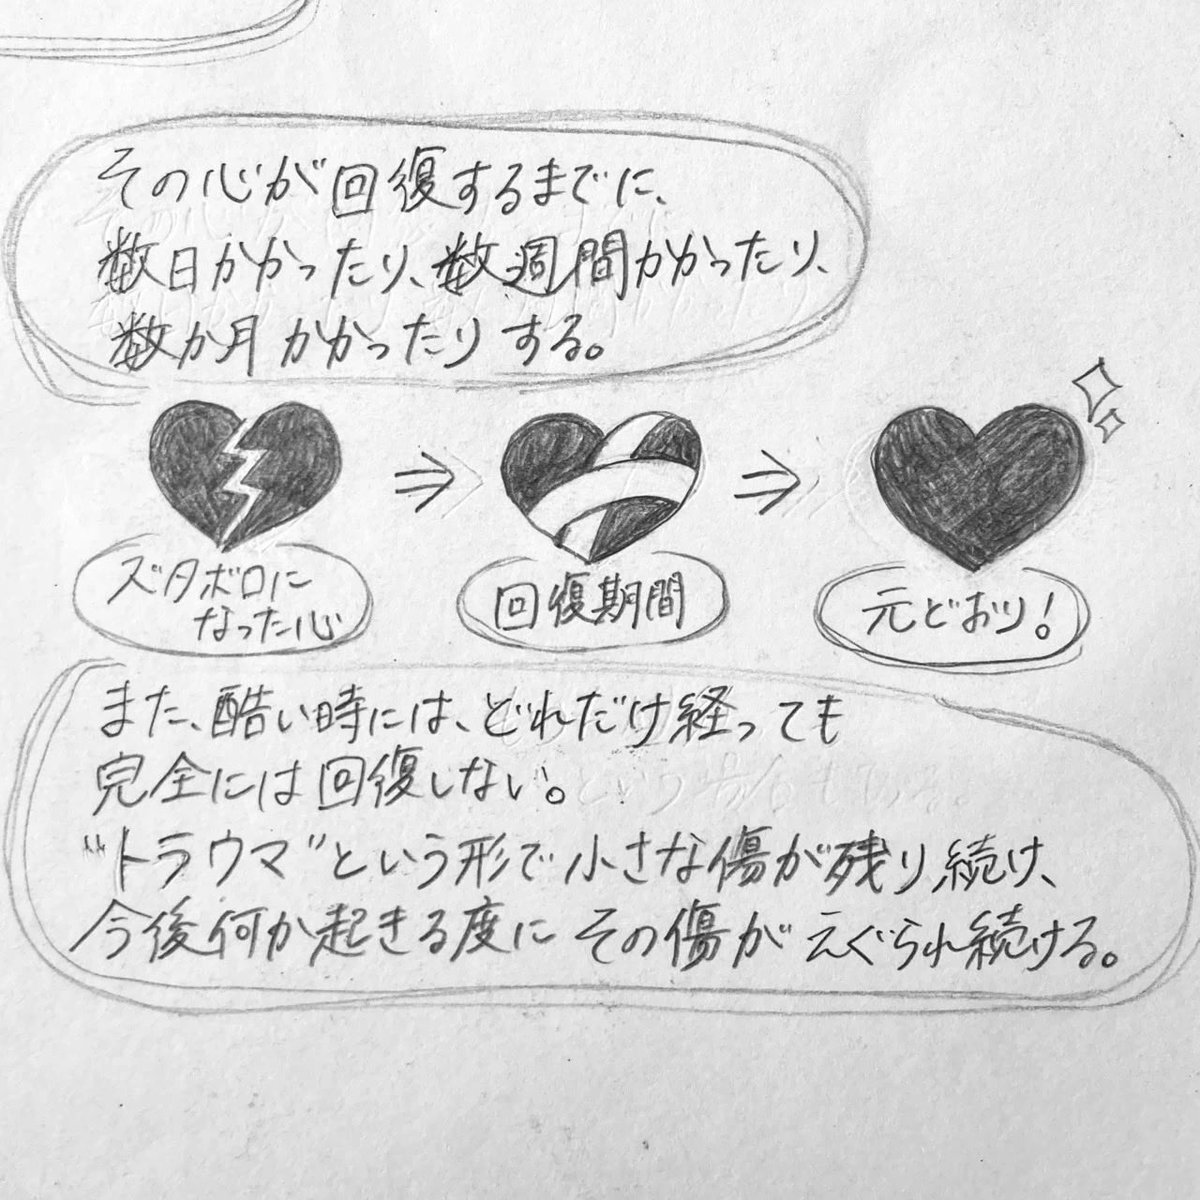 その心が回復するまでに、
数日かかったり、数週間かかったり、
数か月かかったりする。
ズタボロに
なった心
回復期間
元どおり!
また、酷い時には、どれだけ経っても
完全には回復しない。
“トラウマ”という形で小さな傷が残り続け、
今後何か起きる度にその傷がえぐられ続ける。